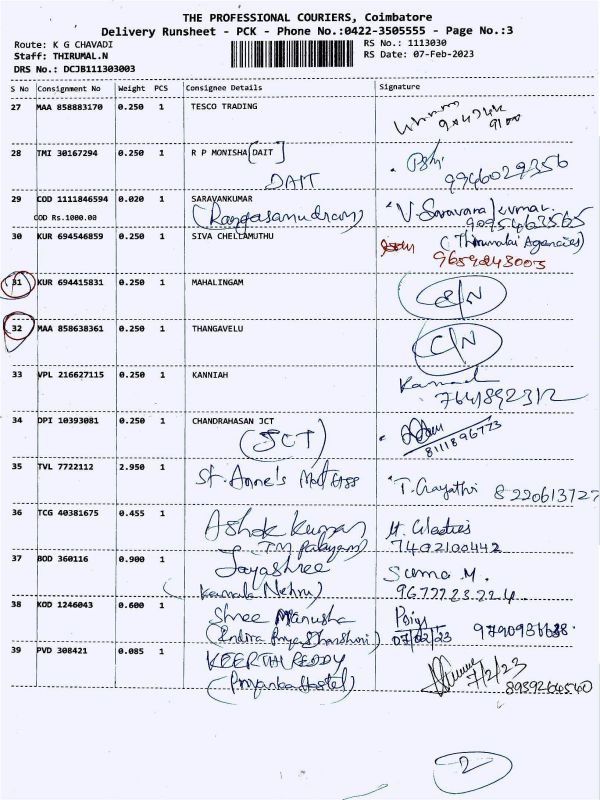 THE PROFESSIONAL COURIERS, Coimbatore
Delivery Runsheet - PCK - Phone No.:0422-3505555 - Page No.:3
Route: K G CHAVADI RS No.: 1113030
Staff: THIRUMAL.N RS Date: 07-Feb-2023
DRS No.: DCJB111303003
S No Consignment No Weight PCS Consignee Details Signature
27 MAA 858883170 0.250 1 TESCO TRADING
28 TMI 30167294 0.250 1 R P MONISHA [DAIT]
DAIT 9946029356
29 COD 1111846594 0.020 1 SARAVANKUMAR V. Saravana kumar
COD Rs.1000.00 (Rangasamudram) 9095463565
30 KUR 694546859 0.250 1 SIVA CHELLAMUTHU (Thirumalai Agencies)
9659243005
31 KUR 694415831 0.250 1 MAHALINGAM C/N
32 MAA 858638361 0.250 1 THANGAVELU C/N
33 VPL 216627115 0.250 1 KANNIAH
7641892312
34 DPI 10393081 0.250 1 CHANDRAHASAN JCT
(JCT) 8111896773
35 TVL 7722112 2.950 1 St. Anne's T. Gayathri 8220613727
36 TCG 40381675 0.455 1 Ashok Kumar
TM Palayam) 7402100442
37 BOD 360116 0.900 1 Jayashree Suma M.
(Kamala Nehru) 9677723224
38 KOD 1246043 0.600 1 Shree Manusha
(Indira Priyadharshini) 07/02/23 9790936688
39 PVD 308421 0.085 1 KEERTHI REDDY 7/2/23
(Priyanka Hostel) 8939264540
2